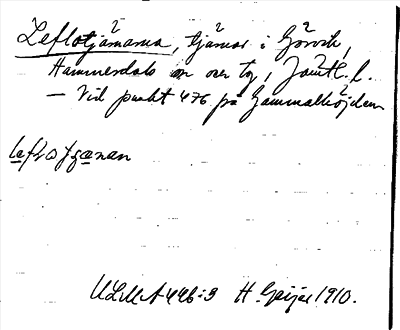 Leflotjämarna, tjärnar i Görvik,
Hammerdals sn o. tg, Jämtl. l.
— Vid punkt 476 på Gammalhöjden
ULMA 446:3 H. Geijer 1910.